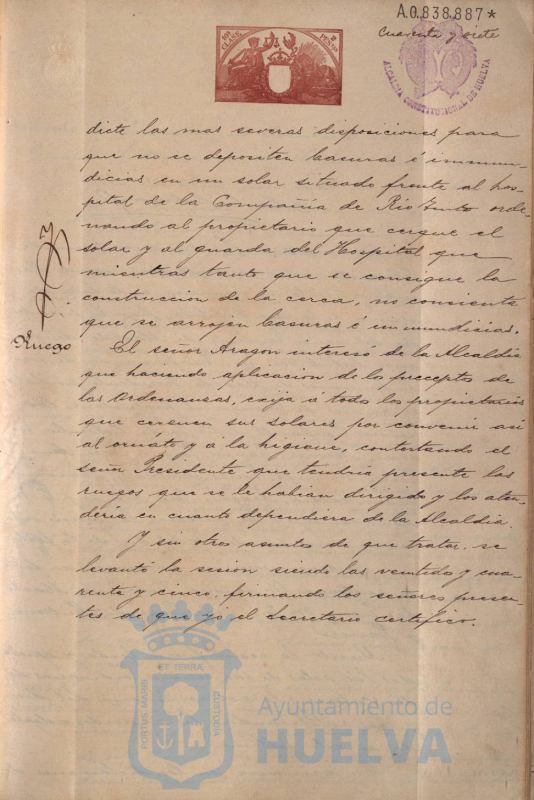 A.0.838,887*
Cuarenta y siete
10ª CLASE
2 PESETAS
ALCALDIA CONSTITUCIONAL DE HUELVA
dicte las mas severas disposiciones para
que no se depositen basuras é inmun-
dicias en un solar situado frente al hos-
pital de la Compañia de Rio Tinto orde-
nando al propietario que cerque el
solar y al guarda del Hospital que
mientras tanto que se consigue la
construccion de la cerca, no consienta
que se arrojen basuras é inmundicias.
Ruego
El señor Aragon interesó de la Alcaldia
que haciendo aplicacion de los preceptos de
las Ordenansas, exija á todos los propietarios
que cerquen sus solares por convenir asi
al ornato y á la higiene, contestando el
señor Presidente que tendria presente los
ruegos que se le habian dirigido y los aten-
deria en cuanto dependiera de la Alcaldia.
Y sin otros asuntos de que tratar, se
levantó la sesion siendo las veintidos y cua-
renta y cinco, firmando los señores presen-
tes de que yo el Secretario certifico.
PORTUS MARIS ET TERRÆ CUSTODIA
Ayuntamiento de
HUELVA